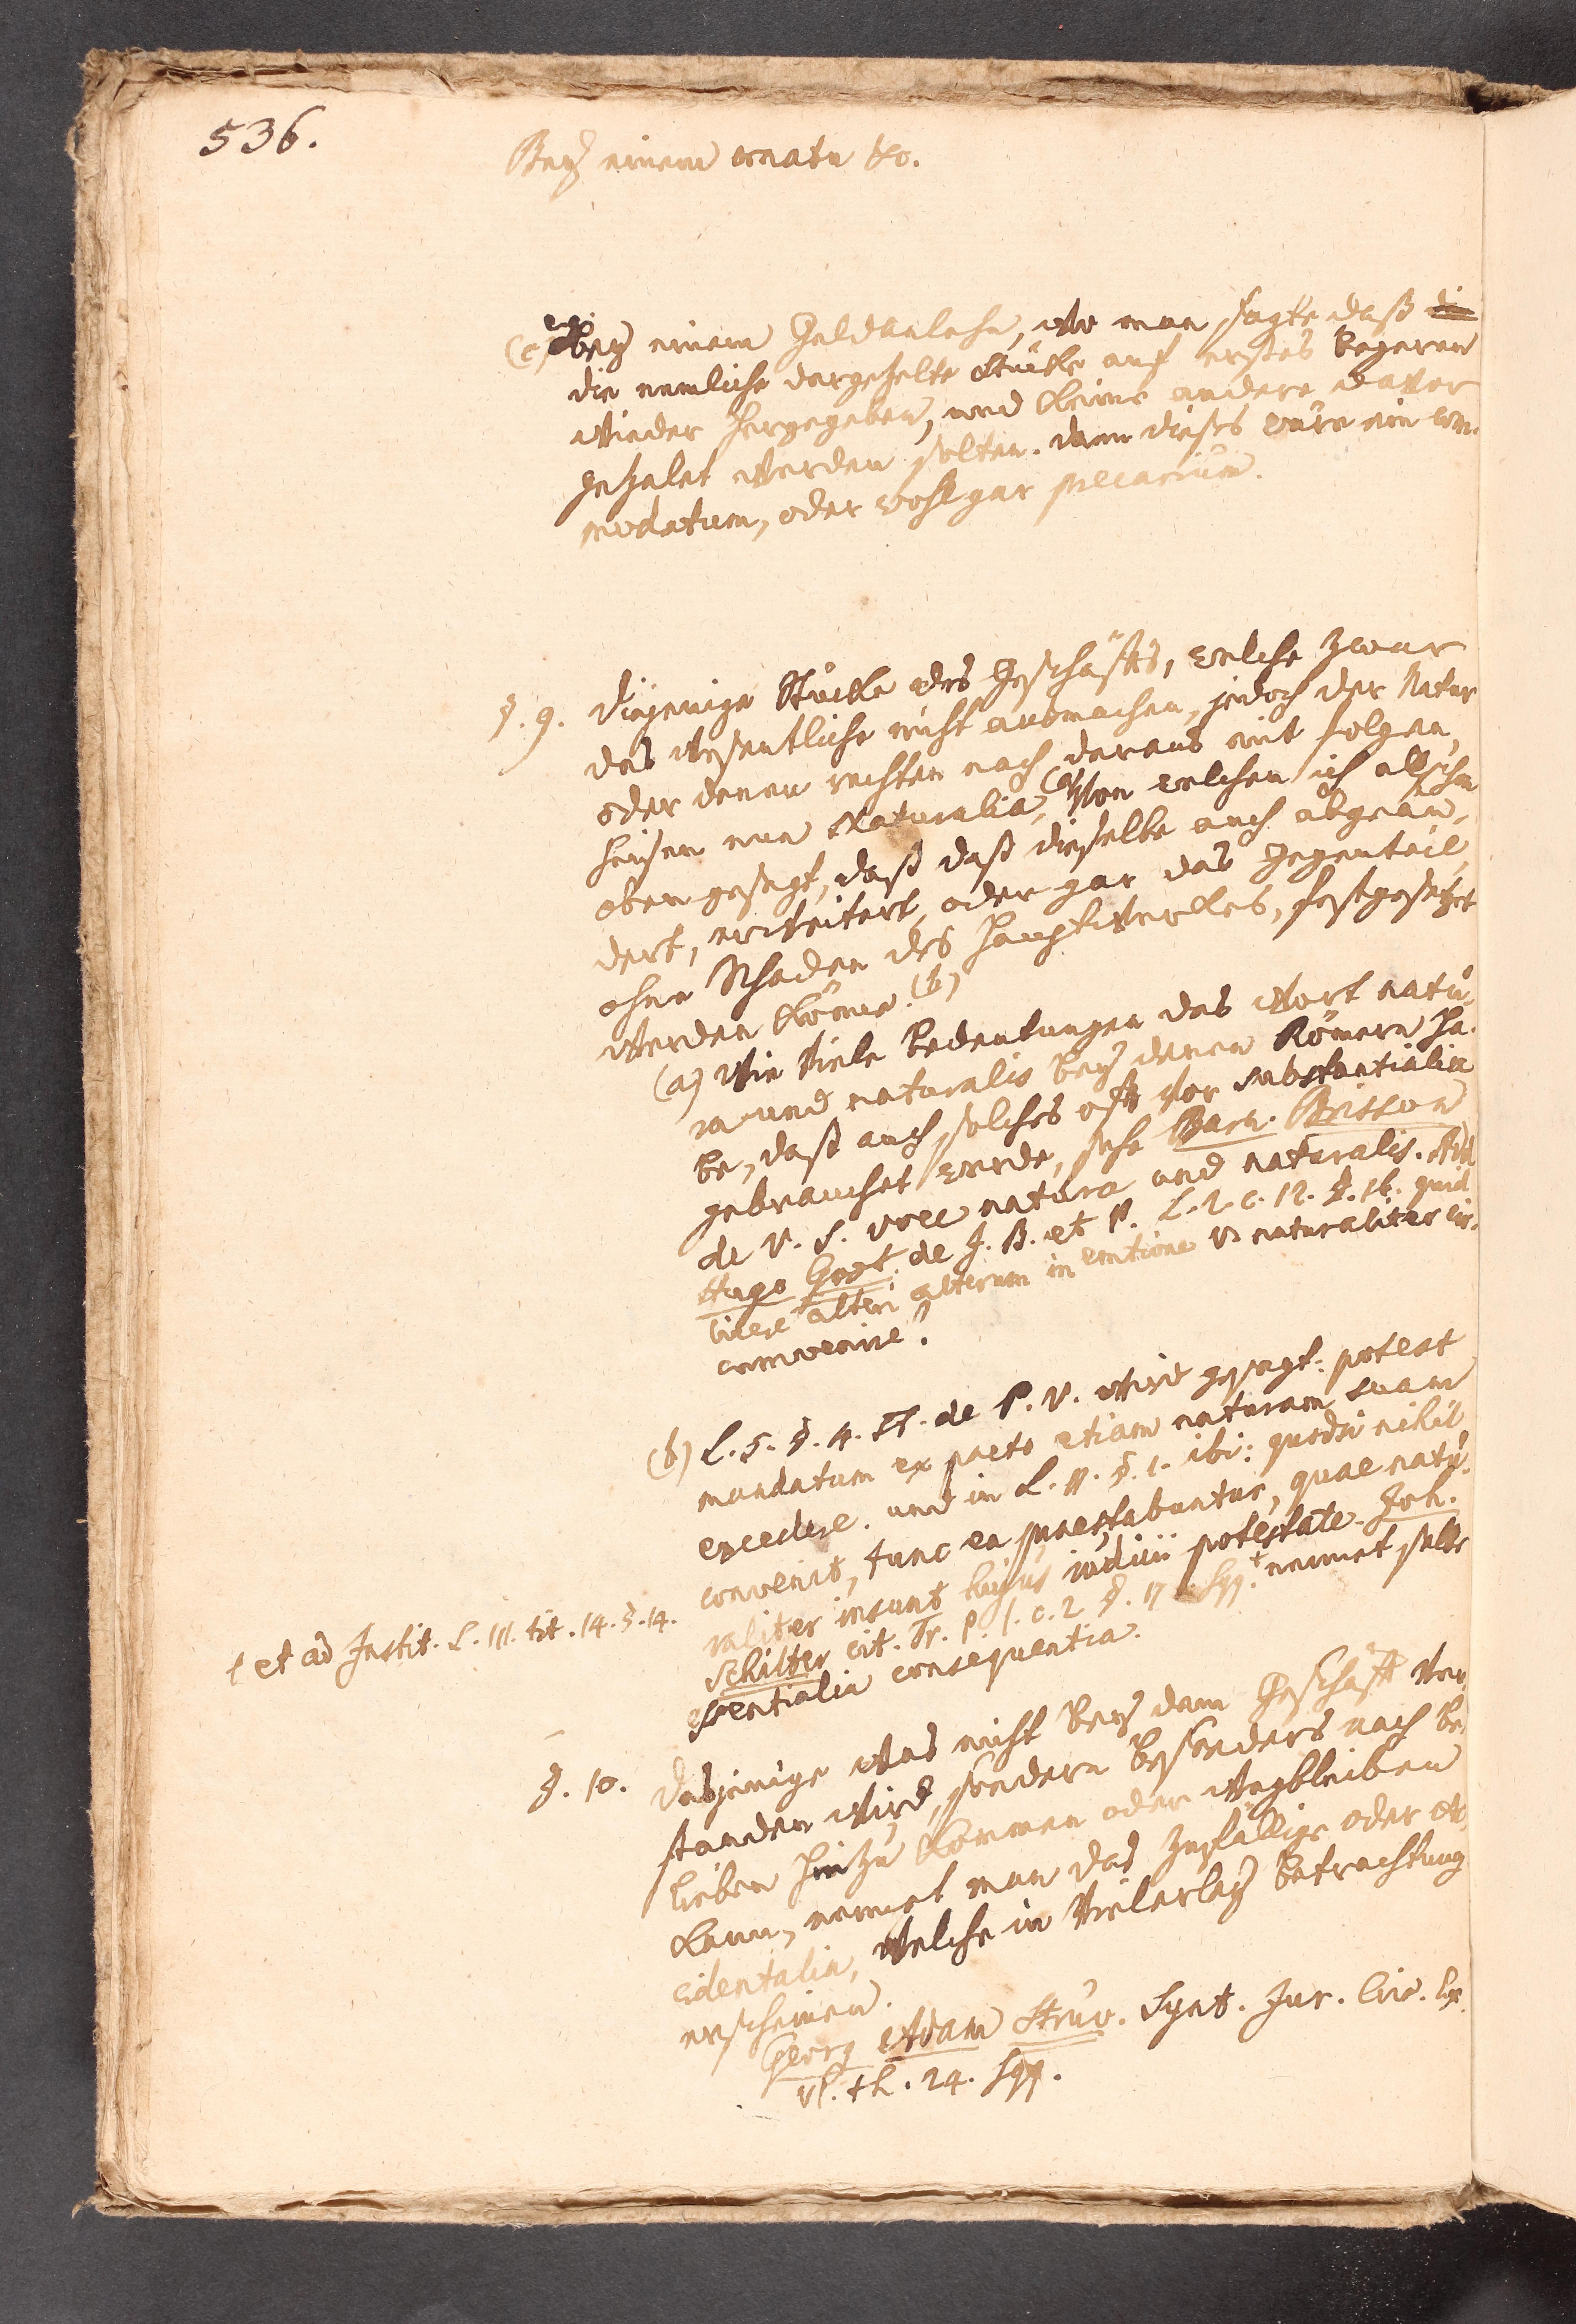 536.
Bey einem ornatu &c.
(c) e.g. bey einem Geldanlehn, wo man sagte daß die
die nemliche dargezelte Stücke auf erstes begeren
wieder hergegeben, und keine andere davor
gezalet werden solten. dann dieses wäre ein com-
modatum, oder wohl gar precarium.
§. 9. Diejenige Stücke des Geschäfts, welche zwar
das wesentliche nicht ausmachen, jedoch der Natur
oder denen rechten nach daraus mit folgen,
heisen nun Naturalia, (a) von welchen ich allschon
oben gesagt, daß daß dieselbe auch abgeän-
dert, erweitert, oder gar das Gegenteil,
ohne Schaden des Hauptwerkes, festgesetzet
werden könne. (b)
(a) wie viele bedeutungen das wort natu-
ra und naturalis bey denen Römern ha-
be, daß auch solches oft vor substantialia
gebrauchet werde, sehe Barn. Brisson
de V. S. voce natura und naturalis. Add
Hugo Grot. de J. B. et P. L. 2. c. 12. §. 26. quid
licere alteri alterum in emtione V. naturaliter cir-
cumvenire?
(b) L. 5. §. 4. ff. de P. V. wird gesagt: potest
mandatum ex pacto etiam naturam suam
excedere. und in L. 11. §. 1. ibi: quodsi nihil
convenit, tunc ea praestabuntur, quae natu-
raliter insunt hujus iudicii potestate. Joh.
Schilter cit. Tr. P. 1. c. 2 §. 17. sqq. + nennet selbe
essentialia consequentia.
+ et ad Instit. L. III. tit. 14. §. 14.
§. 10. Dasjenige was nicht bey dem Geschäft ver-
standen wird, sondern besonders nach be-
lieben hinzu kommen oder wegbleiben
kann, nennet man das zufällige oder ac-
cidentalia, welche in vielerley betrachtung
erscheinen.
Georg Adam Struv. Synt. Jur. Civ. Ex.
VI. th. 24. sqq.